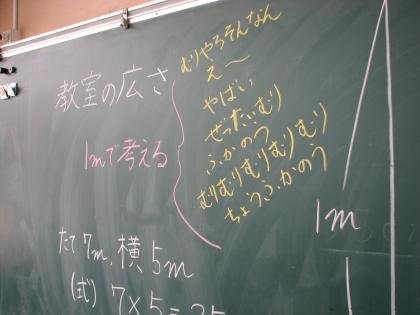 教室の広さ
1mで考える
むりやろそんなん
え〜
やばい
ぜったいむり
ふかのう
むりむりむりむりむり
ちょうふかのう
たて7m,横5m
(式) 7×5=35
1m